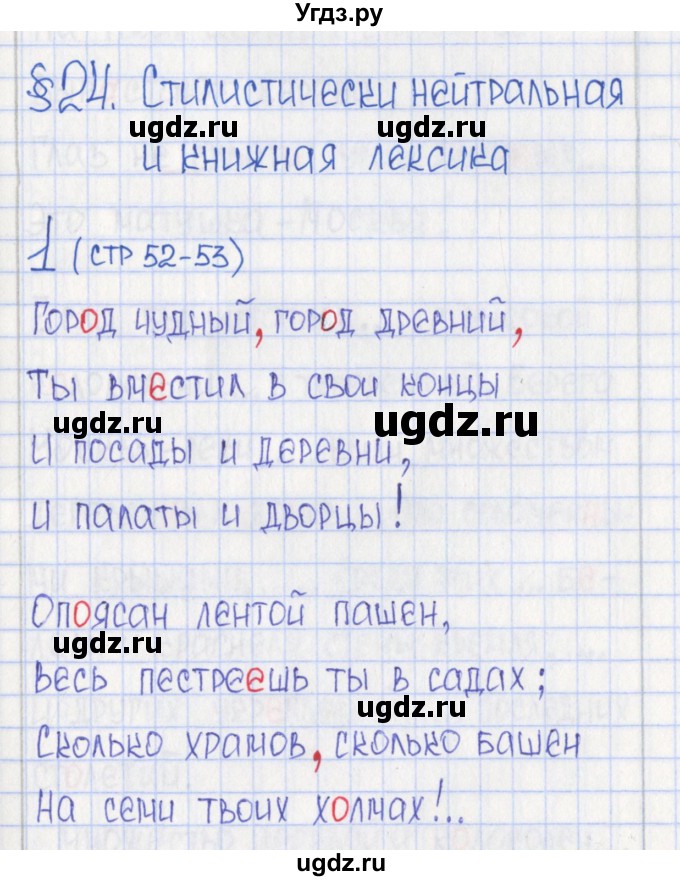 Угдз.ру
§24. Стилистически нейтральная
ugdz.ru ugdz.ru
и книжная лексика
1 (стр 52-53)
Город чудный, город древний,
Ты вместил в свои концы
ugdz.ru ugdz.ru
И посады и деревни,
И палаты и дворцы!
Опоясан лентой пашен,
ugdz.ru
Весь пестреешь ты в садах;
ugdz.ru
Сколько храмов, сколько башен
На семи твоих холмах!..
ugdz.ru